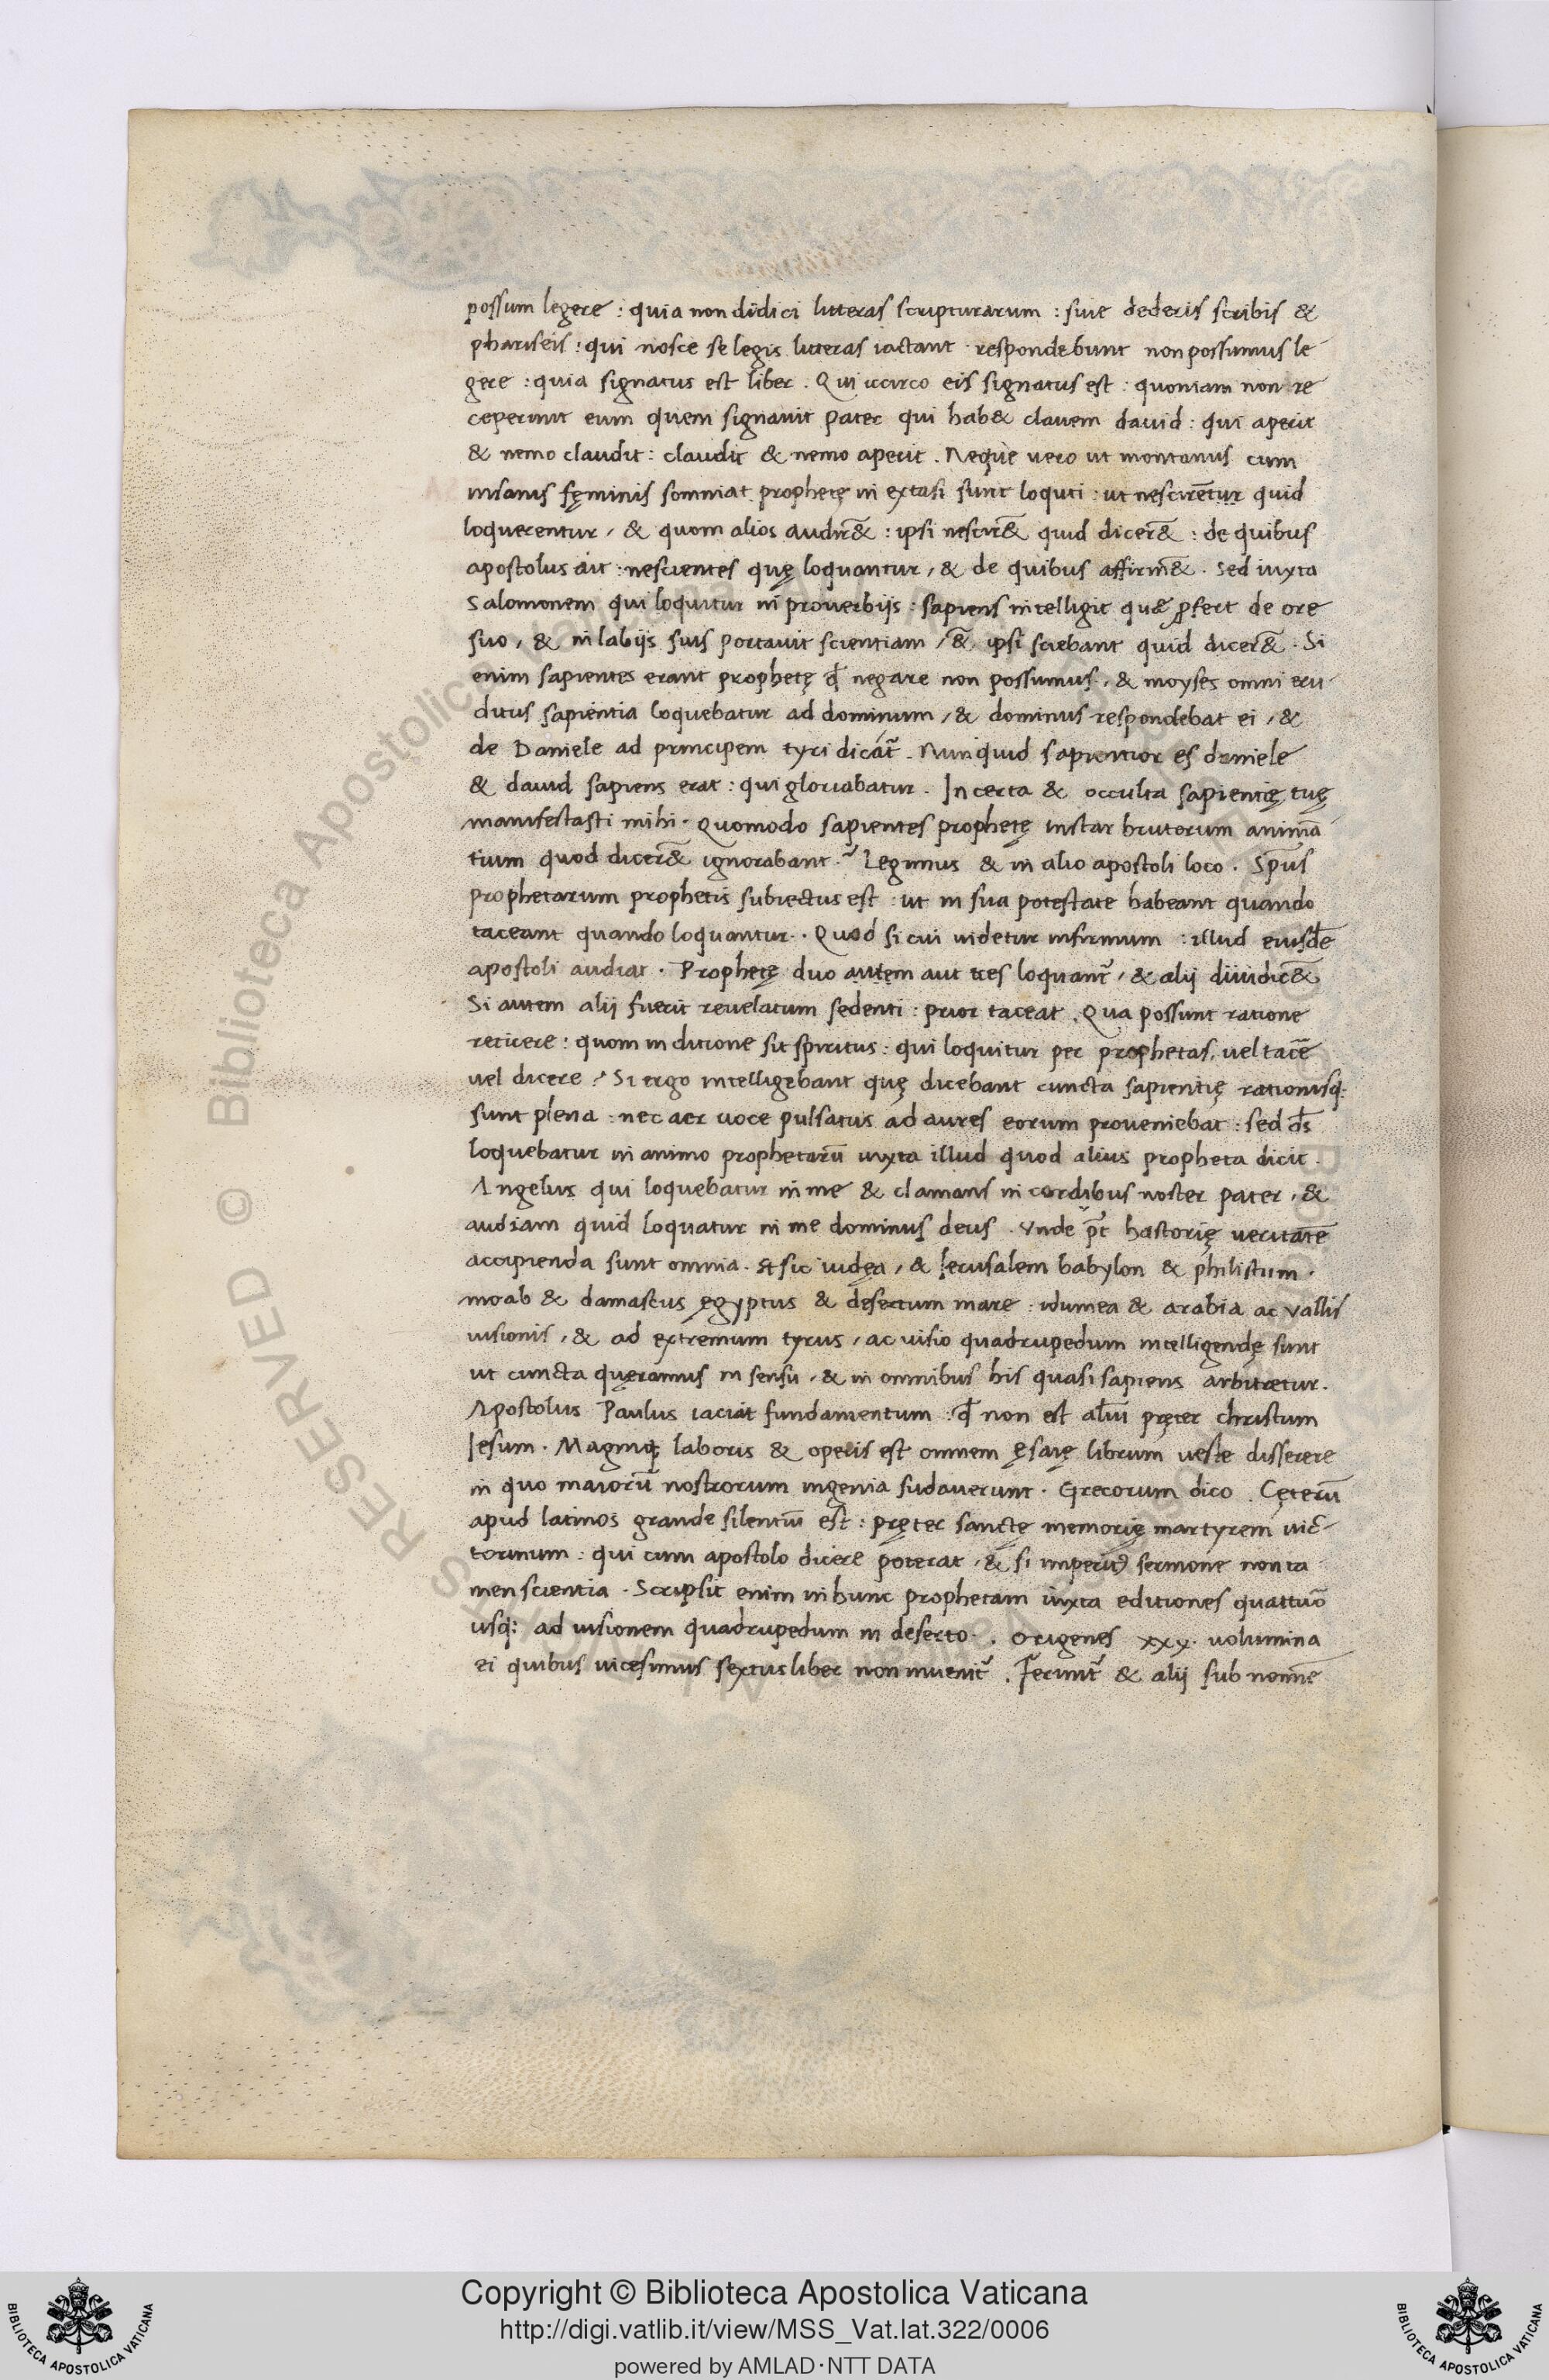 possum legere : quia non didici litteras scripturarum : siue dederis scribis &
phariseis : qui nosce se legis litteras iactant respondebunt non possumus le
gere : quia signatus est liber . Qui iccirco eis signatus est : quoniam non re
ceperunt eum quem signauit pater qui hab& clauem dauid : qui aperit
& nemo claudit : claudit & nemo aperit . Neque uero ut montanus cum
insanis fęminis somniat prophetę in extasi sunt loquti : ut nescirētur quid
loquerentur , & quom alios audir&̄ : ipsi nescir&̄ quid dicer&̄ : de quibus
apostolus ait : nescientes quę loquantur , & de quibus affirm&̄ . Sed iuxta
Salomonem qui loquitur in prouerbijs : sapiens intelligit quæ ꝓfert de ore
suo , & in labijs suis portauit scientiam , &̄ ipsi sciebant quid dicer&̄ . Si
enim sapientes erant prophetę qđ negare non possumus , & moyses omni eru
ditus sapientia loquebatur ad dominum , & dominus respondebat ei , &
de Daniele ad principem tyri dicat̃ . Nunquid sapientior es daniele
& dauid sapiens erat : qui gloriabatur . Incerta & occulta sapientię tuę
manifestasti mihi . Quomodo sapientes prophetę instar brutorum animā
tium quod dicer&̄ ignorabant ? Legimus & in alio apostoli loco . Sp̄us
prophetarum prophetis subiectus est : ut in sua potestate habeant quando
taceant quando loquantur . Quod si cui uidetur infirmum : illud eiusđe
apostoli audiat . Prophetę duo autem aut tres loquant̃ , & alij diiudic&̄
Si autem alij fuerit reuelatum sedenti : prior taceat . Qua possunt ratione
reticere : quom in ditione sit spiritus : qui loquitur per prophetas , uel tacē
uel dicere ? Si ergo intelligebant quę dicebant cuncta sapientię rationisq:
sunt plena : nec aer uoce pulsatus ad aures eorum proueniebat : sed đs
loquebatur in animo prophetarū iuxta illud quod alius propheta dicit .
Angelus qui loquebatur in me & clamans in cordibus noster pater , &
audiam quid loquatur in me dominus deus . Vnde p̄t hastorię ueritatē
accipienda sunt omnia . Et sic iudęa , & Ierusalem babylon & philistum .
moab & damascus ęgyptus & desertum mare : idumea & arabia ac vallis
uisionis , & ad extremum tyrus , ac uisio quadrupedum intelligendę sunt
ut cuncta quęramus in sensu , & in omnibus his quasi sapiens arbitretur .
Apostolus Paulus iaciat fundamentum : qđ non est aliū pręter christum
Iesum . Magniq; laboris & operis est omnem ęsaię librum ueste disserere
in quo maiorū nostrorum ingenia sudauerunt . Grecorum dico . Cęterū
apud latinos grande silentiū est : pręter sanctę memorię martyrem uic
torinum : qui cum apostolo dicere poterat , & si imperitꝰ sermone non ta
men scientia . Scripsit enim in hunc prophetam iuxta editiones quattuō
usq: ad uisionem quadrupedum in deserto . origenes xxx . uolumina
ei quibus uicesimus sextus liber non inuenit̃ . Ferunt̃ & alij sub nomīe
Copyright © Biblioteca Apostolica Vaticana
http://digi.vatlib.it/view/MSS_Vat.lat.322/0006
powered by AMLAD·NTT DATA